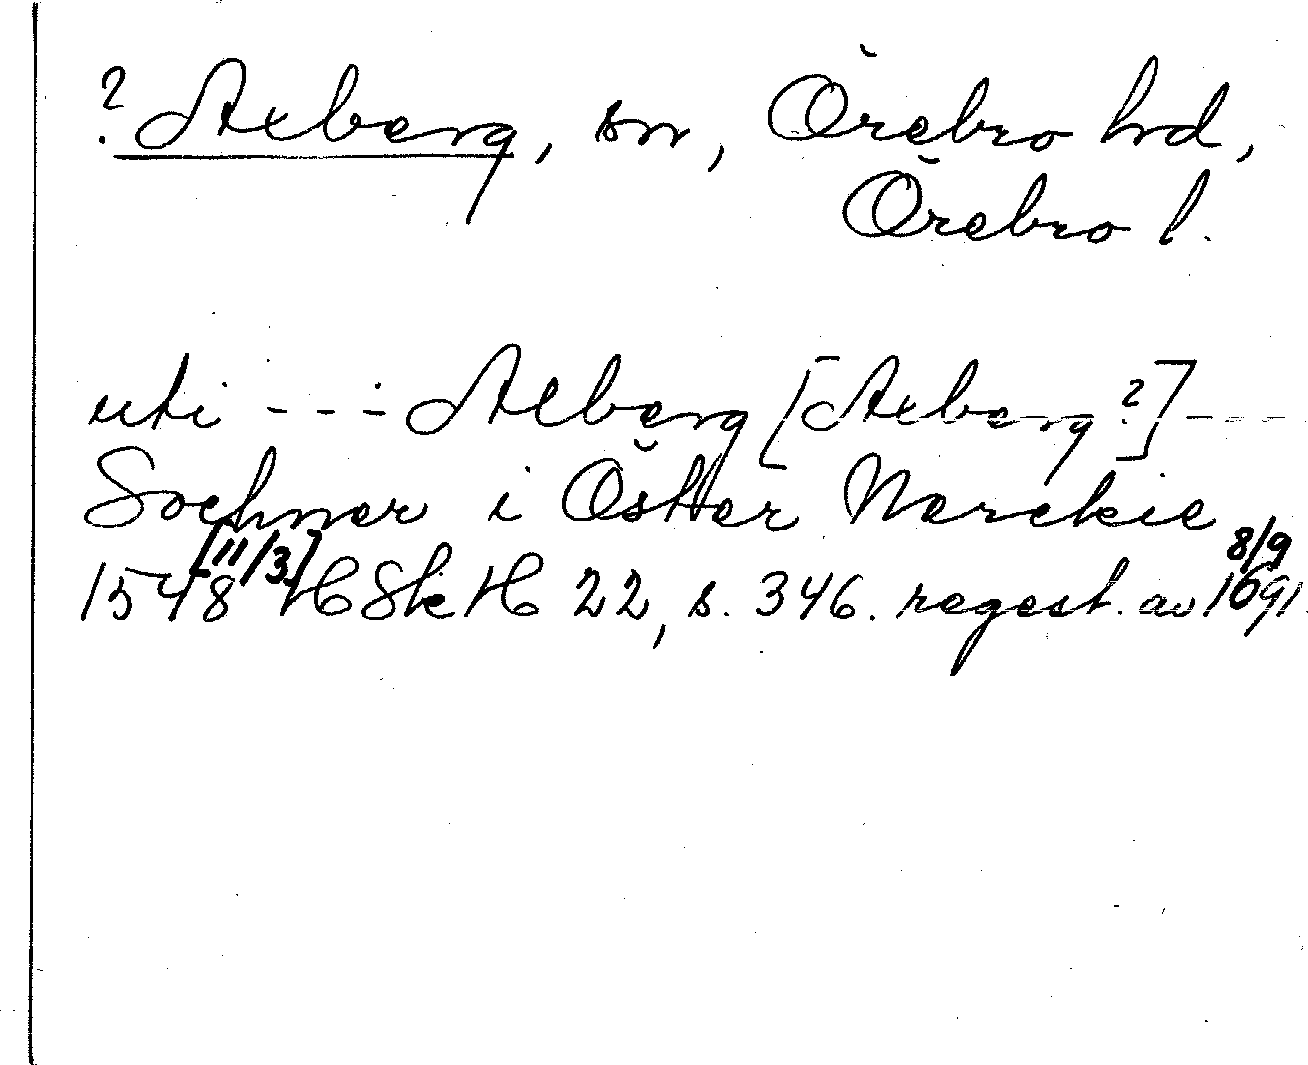 ? Axberg, sn, Örebro hrd,
Örebro l.
uti --- Alberg [Axberg?] ---
Sochner i Öster Nerckie
1548 [11/3] HSkH 22, s. 346. regest. av 8/9 1691.